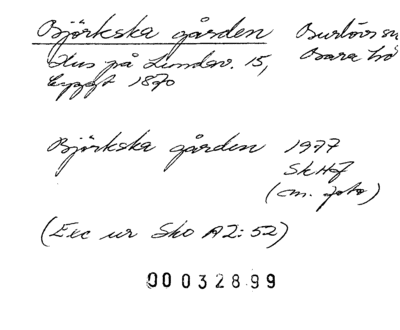 Björkska gården Burlövs
Hus på Lundav. 15, Bara
byggt 1870
Björkska gården 1977
SkHf
(m. foto)
(Exc ur Sko A2:52)
00032899